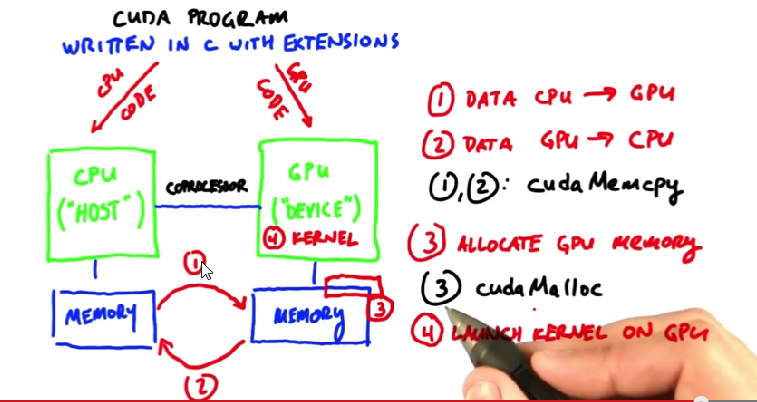 CUDA PROGRAM
WRITTEN IN C WITH EXTENSIONS
CPU CODE
GPU CODE
CPU
("HOST")
COPROCESSOR
GPU
("DEVICE")
④ KERNEL
①
MEMORY
MEMORY
③
②
① DATA CPU → GPU
② DATA GPU → CPU
①,②: cudaMemcpy
③ ALLOCATE GPU MEMORY
③ cudaMalloc
④ LAUNCH KERNEL ON GPU